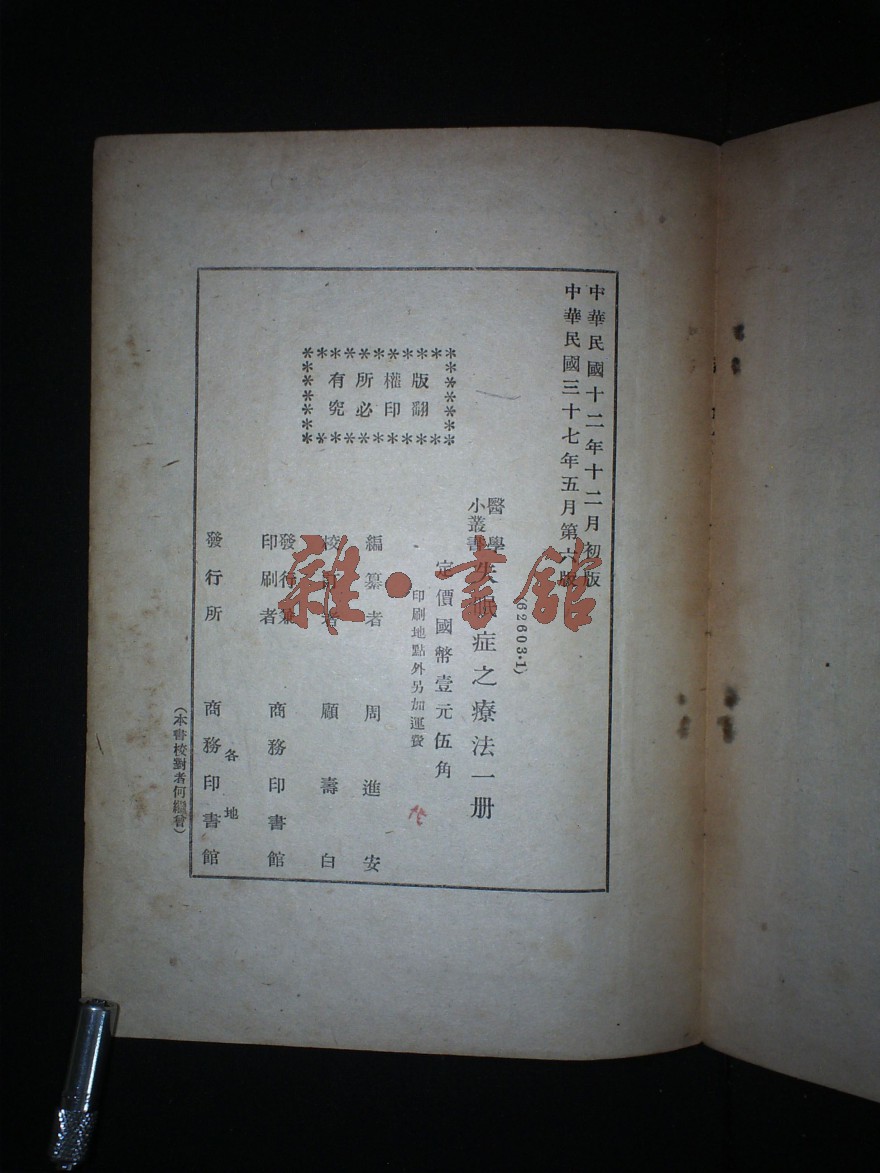 中華民國十二年十二月初版
中華民國三十七年五月第六版
(62603·1)
醫學
小叢書
失眠症之療法一册
定價國幣壹元伍角
印刷地點外另加運費
版權所有
翻印必究
編纂者 周進安
校訂者 顧壽白
發行兼
印刷者 商務印書館
各地
發行所 商務印書館
(本書校對者何繼曾)
雜·書館